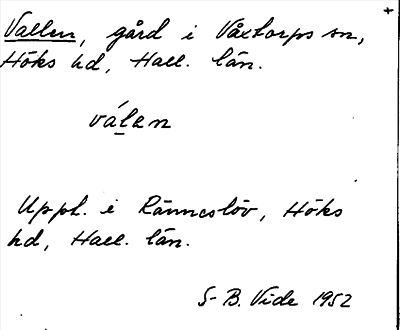 Vallen, gård i Våxtorps sn,
Höks hd, Hall. län.
válen
Uppt. i Ränneslöv, Höks
hd, Hall. län.
S-B. Vide 1952